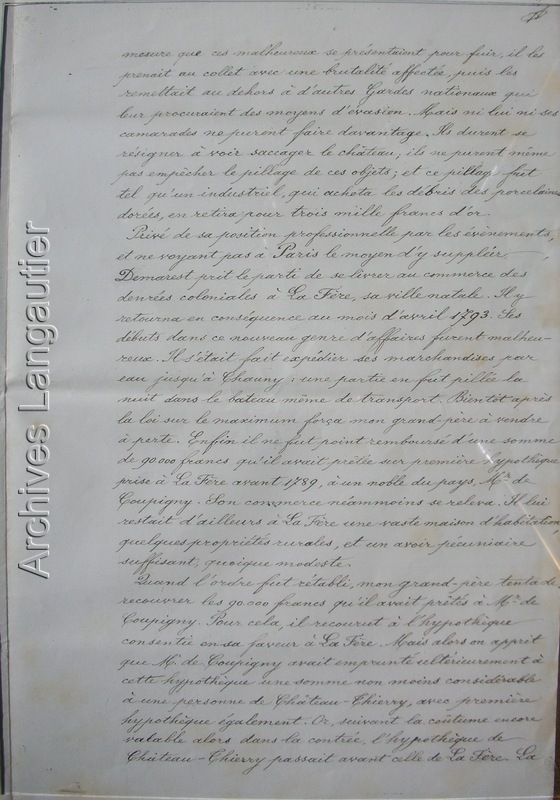 mesure que ces malheureux se présentaient pour fuir, il les
prenait au collet avec une brutalité affectée, puis les
remettait au dehors à d'autres Gardes nationaux qui
leur procuraient des moyens d'évasion. Mais ni lui ni ses
camarades ne purent faire davantage. Ils durent se
résigner à voir saccager le château; ils ne purent même
pas empêcher le pillage de ces objets; et ce pillage fut
tel qu'un industriel, qui acheta les débris des porcelaines
dorées, en retira pour trois mille francs d'or.
Privé de sa position professionnelle par les évènements,
et ne voyant pas à Paris le moyen d'y suppléer
Demarest prit le parti de se livrer au commerce des
denrées coloniales à La Fère, sa ville natale. Il y
retourna en conséquence au mois d'avril 1793. Ses
débuts dans ce nouveau genre d'affaires furent malheu-
reux. Il s'était fait expédier ses marchandises par
eau jusqu'à Chauny: une partie en fut pillée la
nuit dans le bateau même de transport. Bientôt après
la loi sur le maximum força mon grand-père à vendre
à perte. Enfin il ne fut point remboursé d'une somme
de 90 000 francs qu'il avait prêtée sur première hypothèque
prise à La Fère avant 1789, à un noble du pays, Mr. de
Coupigny. Son commerce néammoins se releva. Il lui
restait d'ailleurs à La Fère une vaste maison d'habitation,
quelques propriétés rurales, et un avoir pécuniaire
suffisant, quoique modeste.
Quand l'ordre fut rétabli, mon grand-père tenta de
recouvrer les 90.000 francs qu'il avait prêtés à Mr. de
Coupigny. Pour cela, il recourut à l'hypothèque
consentie en sa faveur à La Fère. Mais alors on apprit
que M. de Coupigny avait emprunté ultérieurement à
cette hypothèque une somme non moins considérable
à une personne de Château-Thierry, avec première
hypothèque également. Or, suivant la coûtume encore
valable alors dans la contrée, l'hypothèque de
Château-Thierry passait avant celle de La Fère. La
Archives Langautier